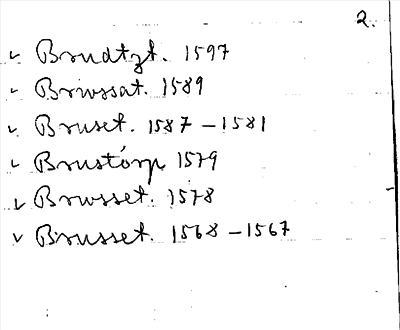 2.
✓ Brudtzt. 1597
✓ Brwssat. 1589
✓ Bruset. 1587 – 1581
✓ Brustörp 1579
✓ Brwsset. 1578
✓ Brusset. 1568 – 1567